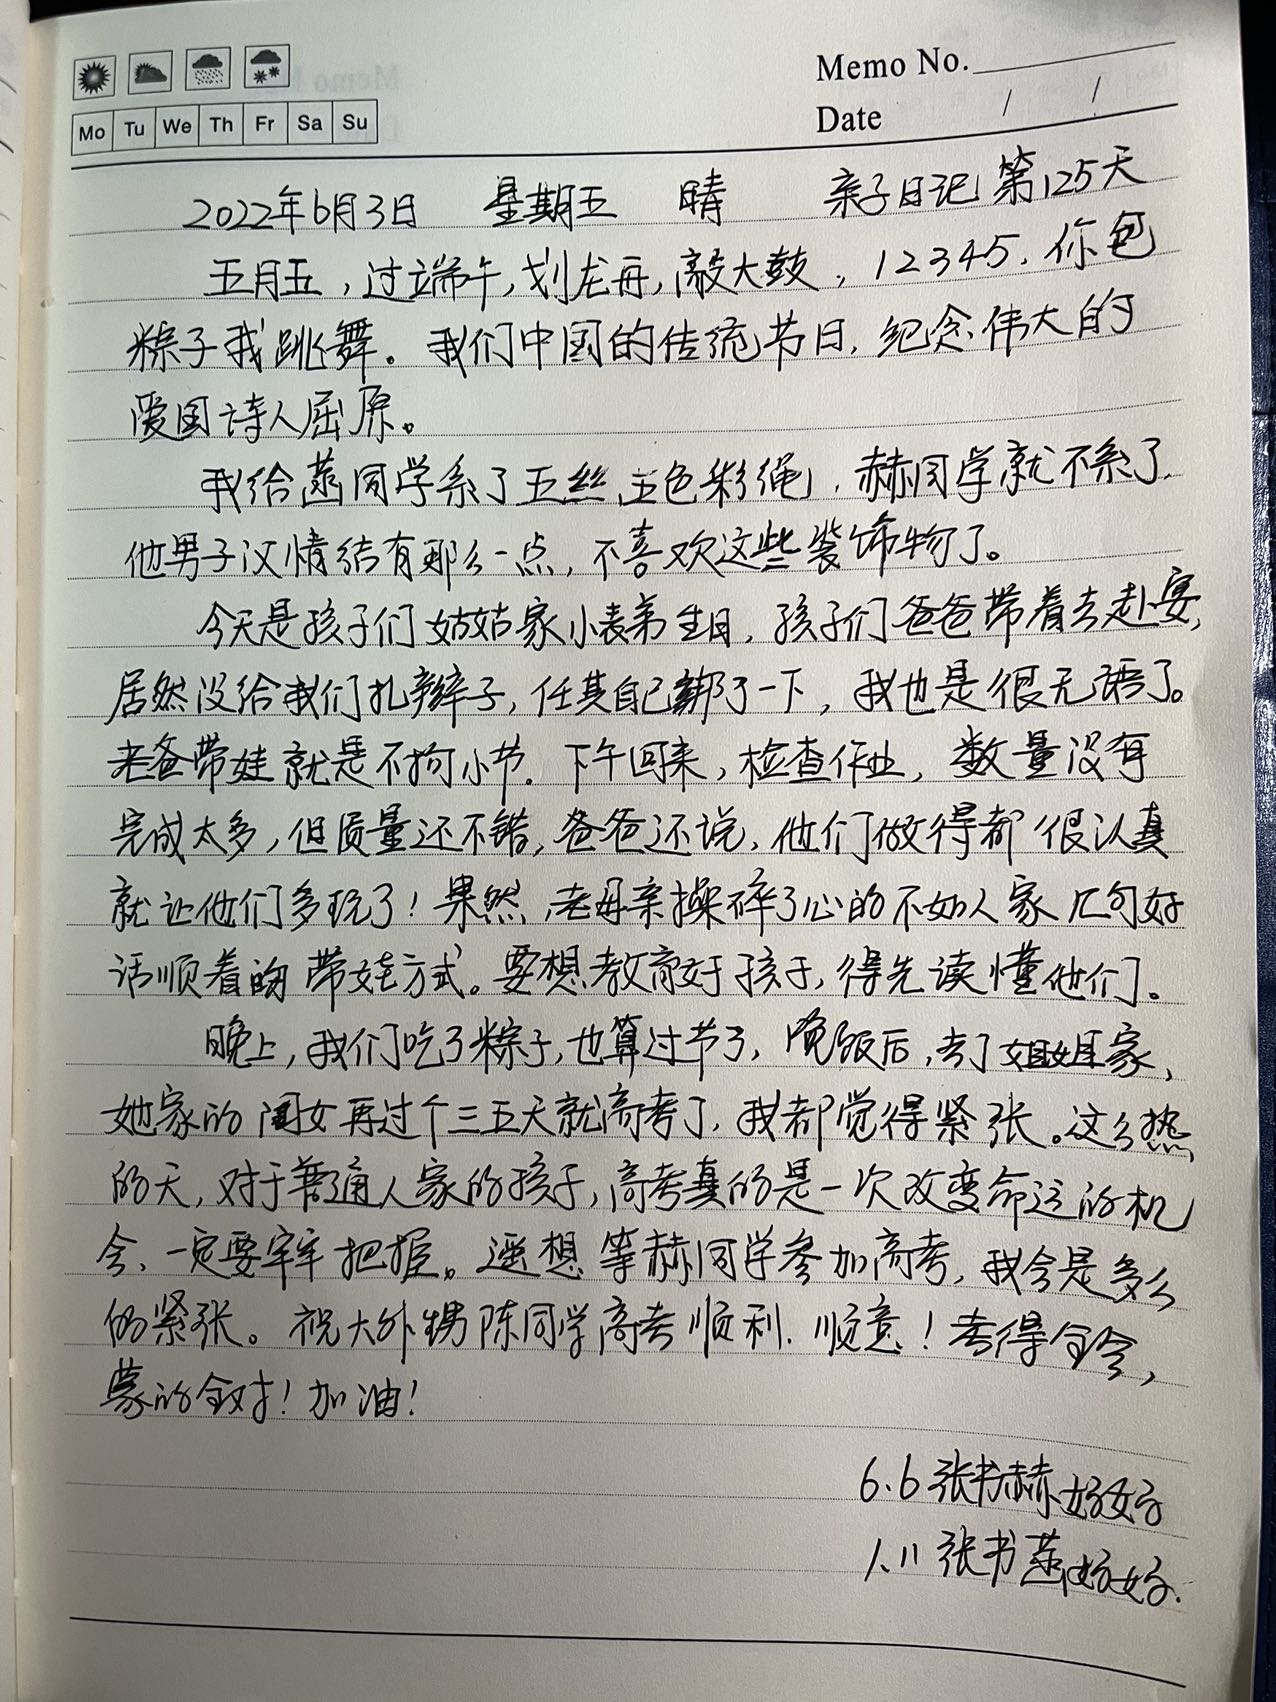 Memo No.
Mo Tu We Th Fr Sa Su
Date / /
2022年6月3日 星期五 晴 亲子日记 第125天
五月五，过端午，划龙舟，敲大鼓，12345，你包
粽子我跳舞。我们中国的传统节日，纪念伟大的
爱国诗人屈原。
我给菡同学系了五丝五色彩绳，赫同学就不系了，
他男子汉情结有那么一点，不喜欢这些装饰物了。
今天是孩子们姑姑家小表弟生日，孩子们爸爸带着去赴宴，
居然没给我们扎辫子，任其自己绑了一下，我也是很无语了。
老爸带娃就是不拘小节。下午回来，检查作业，数量没有
完成太多，但质量还不错，爸爸还说，他们做得都很认真
就让他们多玩了！果然，老母亲操碎了心的不如人家几句好
话顺着的带娃方式。要想教育好孩子，得先读懂他们。
晚上，我们吃了粽子，也算过节了，晚饭后，去了姐姐家，
她家的闺女再过个三五天就高考了，我都觉得紧张。这么热
的天，对于普通人家的孩子，高考真的是一次改变命运的机
会，一定要牢牢把握。遥想等赫同学参加高考，我会是多么
的紧张。祝大外甥陈同学高考顺利、顺意！考得全会，
蒙的全对！加油！
6.6 张书赫好好
1.11 张书菡好好.